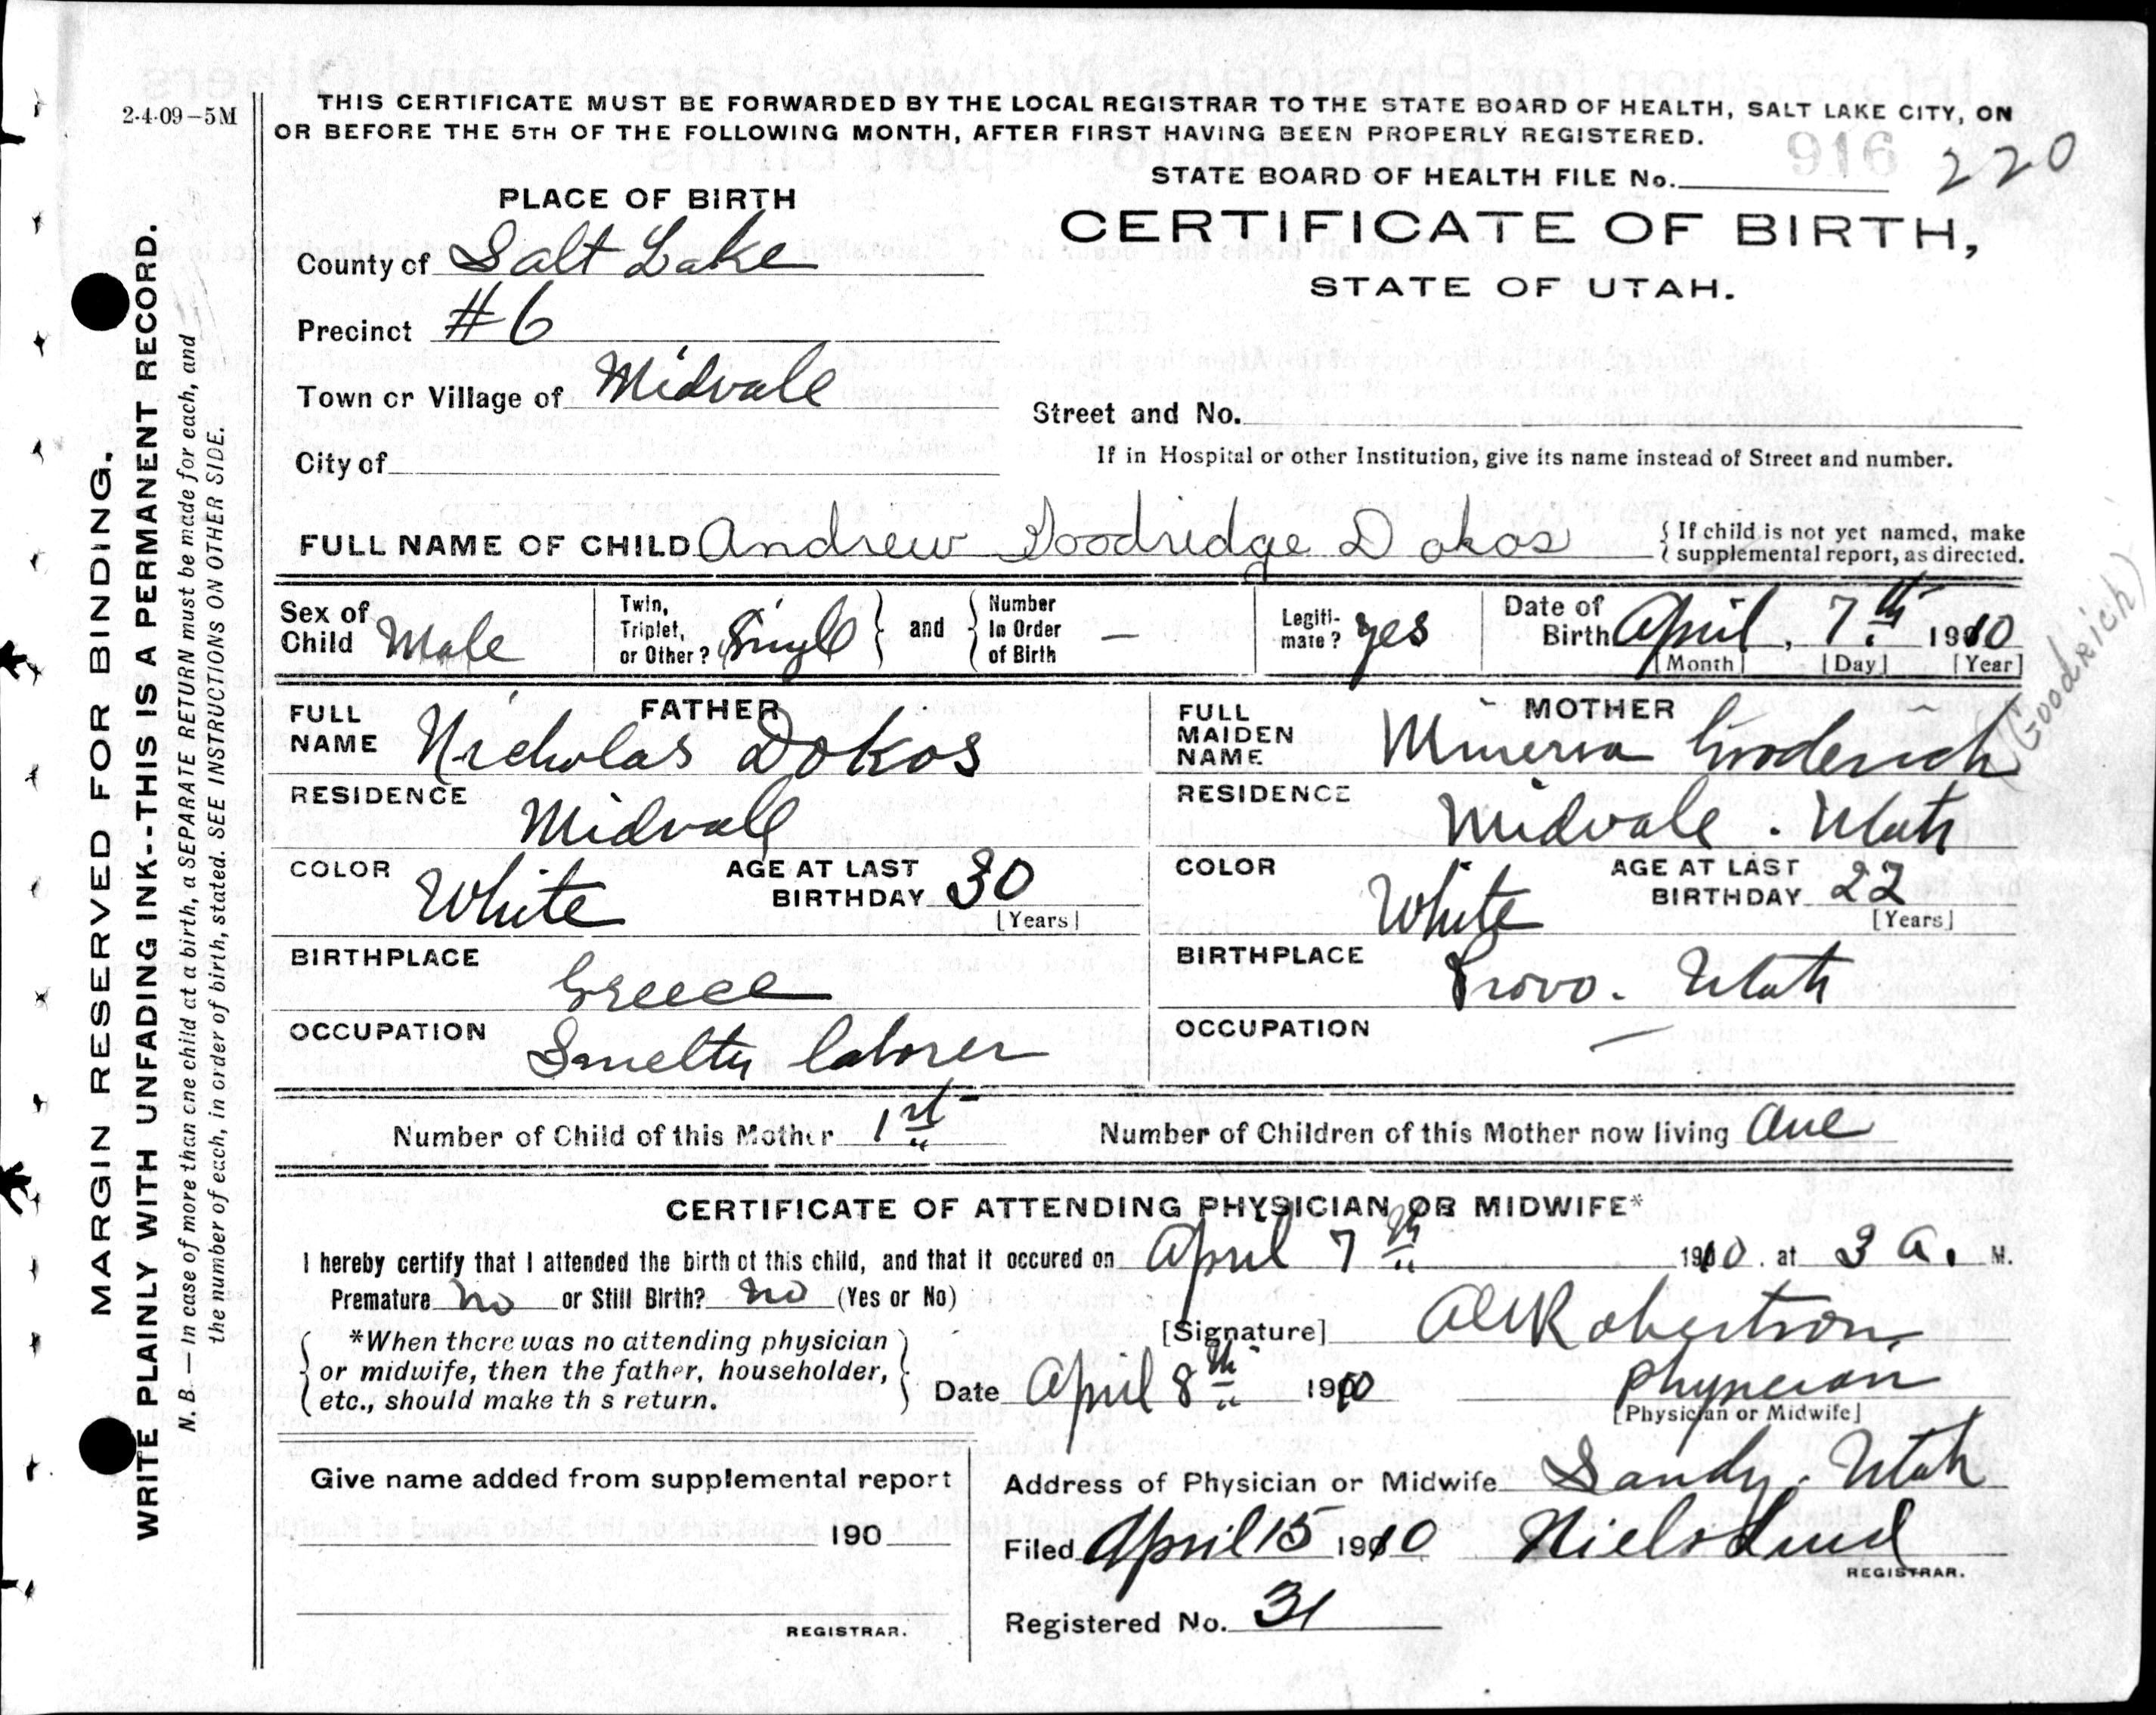 2-4-09-5M
THIS CERTIFICATE MUST BE FORWARDED BY THE LOCAL REGISTRAR TO THE STATE BOARD OF HEALTH, SALT LAKE CITY, ON
OR BEFORE THE 5TH OF THE FOLLOWING MONTH, AFTER FIRST HAVING BEEN PROPERLY REGISTERED.
STATE BOARD OF HEALTH FILE No. 916 220
PLACE OF BIRTH
CERTIFICATE OF BIRTH,
STATE OF UTAH.
County of Salt Lake
Precinct #6
Town or Village of Midvale
Street and No.
City of
If in Hospital or other Institution, give its name instead of Street and number.
FULL NAME OF CHILD Andrew Goodridge Dokos
{ If child is not yet named, make
supplemental report, as directed.
Sex of Child Male
Twin, Triplet, or Other? Single } and { Number In Order of Birth —
Legitimate? yes
Date of Birth April, 7th 1910
[Month] [Day] [Year]
FATHER
FULL NAME Nicholas Dokos
RESIDENCE Midvale
COLOR White AGE AT LAST BIRTHDAY 30
[Years]
BIRTHPLACE Greece
OCCUPATION Smelter laborer
MOTHER
FULL MAIDEN NAME Minerva Gooderich (Goodrich)
RESIDENCE Midvale. Utah
COLOR White AGE AT LAST BIRTHDAY 22
[Years]
BIRTHPLACE Provo. Utah
OCCUPATION —
Number of Child of this Mother 1st Number of Children of this Mother now living One
CERTIFICATE OF ATTENDING PHYSICIAN OR MIDWIFE*
I hereby certify that I attended the birth of this child, and that it occured on April 7th 1910. at 3 A. M.
Premature no or Still Birth? no (Yes or No)
*When there was no attending physician
or midwife, then the father, householder,
etc., should make th s return.
[Signature] Robertson
Date April 8th 1910 physician
[Physician or Midwife]
Give name added from supplemental report
190
REGISTRAR.
Address of Physician or Midwife Sandy. Utah
Filed April 15 1910 Niels Lind
REGISTRAR.
Registered No. 31
MARGIN RESERVED FOR BINDING.
WRITE PLAINLY WITH UNFADING INK--THIS IS A PERMANENT RECORD.
N. B. — In case of more than one child at a birth, a SEPARATE RETURN must be made for each, and
the number of each, in order of birth, stated. SEE INSTRUCTIONS ON OTHER SIDE.